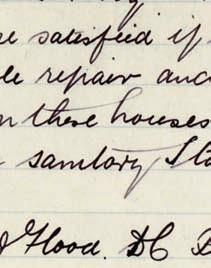 re satisfied if
le repair and
n these houses
sanitary Sta
Flood. DC D